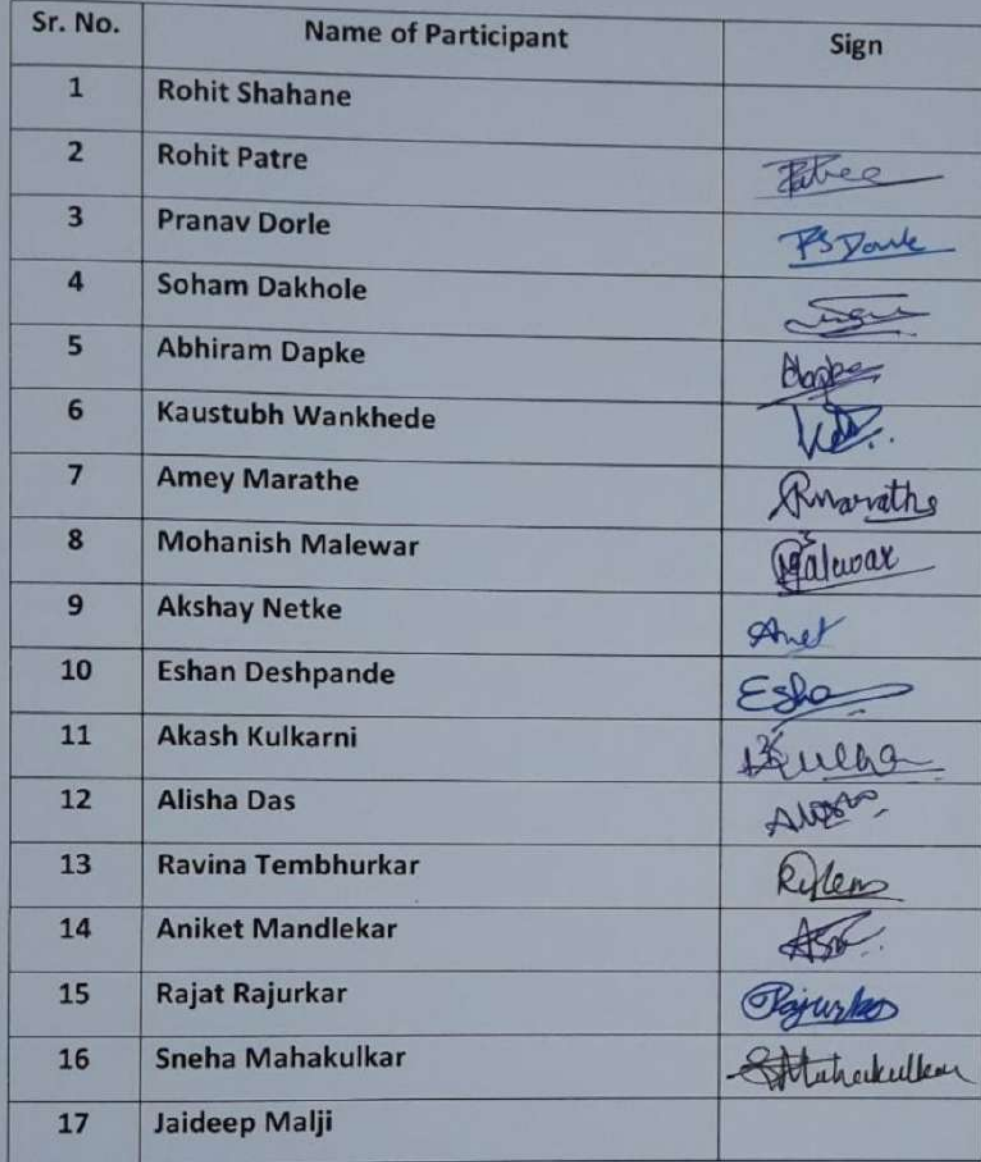 Sr. No. Name of Participant Sign
1 Rohit Shahane
2 Rohit Patre
3 Pranav Dorle PS Dorle
4 Soham Dakhole
5 Abhiram Dapke Dapke
6 Kaustubh Wankhede
7 Amey Marathe Amarathe
8 Mohanish Malewar Malewar
9 Akshay Netke Anet
10 Eshan Deshpande Esha
11 Akash Kulkarni
12 Alisha Das
13 Ravina Tembhurkar
14 Aniket Mandlekar
15 Rajat Rajurkar Rajurkar
16 Sneha Mahakulkar SMahakulkar
17 Jaideep Malji